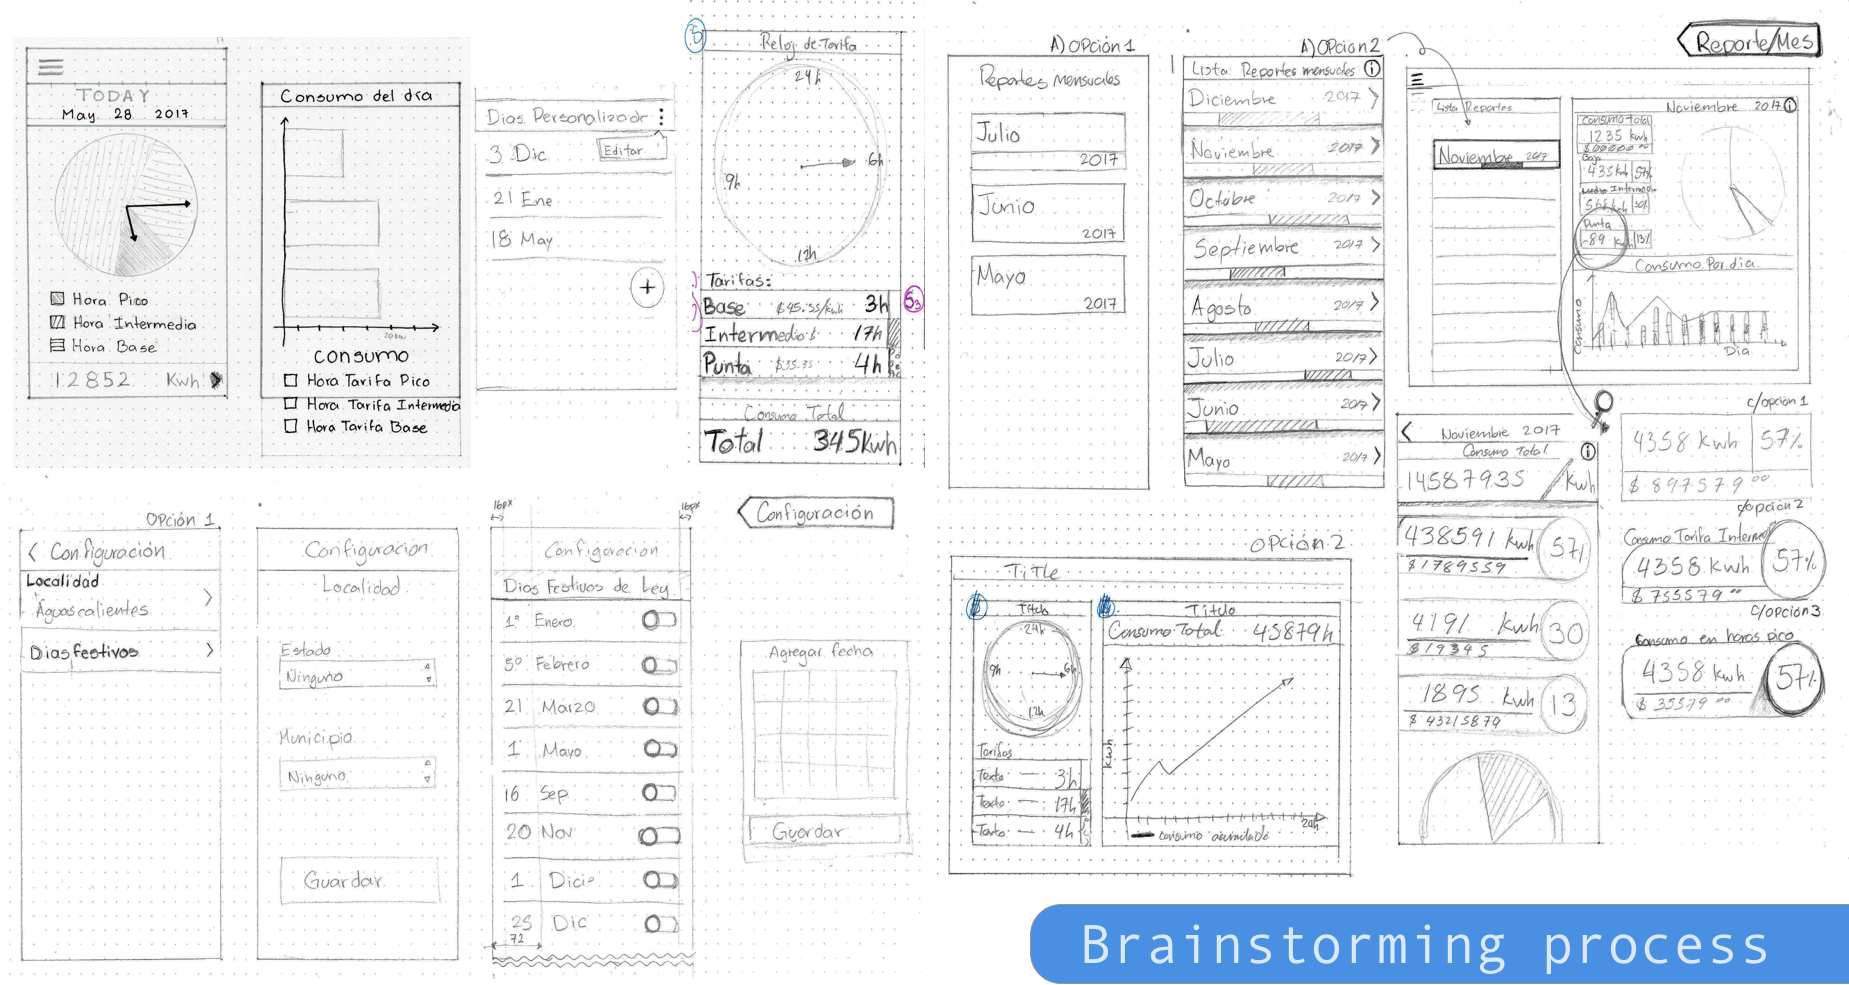 TODAY
May 28 2017
Hora Pico
Hora Intermedia
Hora Base
12852 Kwh
Consumo del día
consumo
Hora Tarifa Pico
Hora Tarifa Intermedia
Hora Tarifa Base
Dias Personalizadr
3 Dic
Editar
21 Ene
18 May
+
5
Reloj de Tarifa
24h
6h
9h
12h
Tarifas:
Base $45.35/kwh 3h
53
Intermedio 17h
Punta $35.35 4h
Consumo Total
Total 345Kwh
A) Opción 1
Reportes Mensuales
Julio
2017
Junio
2017
Mayo
2017
A) Opcion 2
Lista Reportes mensuales i
Diciembre 2017
Noviembre 2017
Octubre 2017
Septiembre 2017
Agosto 2017
Julio 2017
Junio 2017
Mayo 2017
Reporte/Mes
Lista Reportes
Noviembre 2017
Noviembre 2017 i
Consumo total
1235 kwh
Baja
435 kwh 57%
Intermedio
Punta
89 Kwh 13%
Consumo Por dia
Consumo
Dia
Noviembre 2017
Consumo Total i
14587935 /Kwh
438591 kwh 57%
$1789559
4191 Kwh 30
$19345
1895 Kwh 13
$43215879
c/opción 1
4358 Kwh 57%
$897579 00
c/opción 2
Consumo Tarifa Interme
4358 Kwh 57%
$755579 00
c/opcion 3
Consumo en horas pico
4358 Kwh 57%
$35579 00
Opción 1
Configuración
Localidad
Aguascalientes
Dias festivos
Configuracion
Localidad
Estado
Ninguno
Municipio
Ninguno
Guardar
16px
16px
Configuración
Dias Festivos de Ley
1° Enero
5° Febrero
21 Marzo
1 Mayo
16 Sep
20 Nov
1 Dici
25 Dic
72
Configuración
Agregar fecha
Guardar
Opción 2
TiTle
Titulo
24h
9h
6h
12h
Tarifas
Texto 3h
Texto 17h
Texto 4h
Titulo
Consumo Total 45879h
Kwh
24h
Consumo acumulado
Brainstorming process